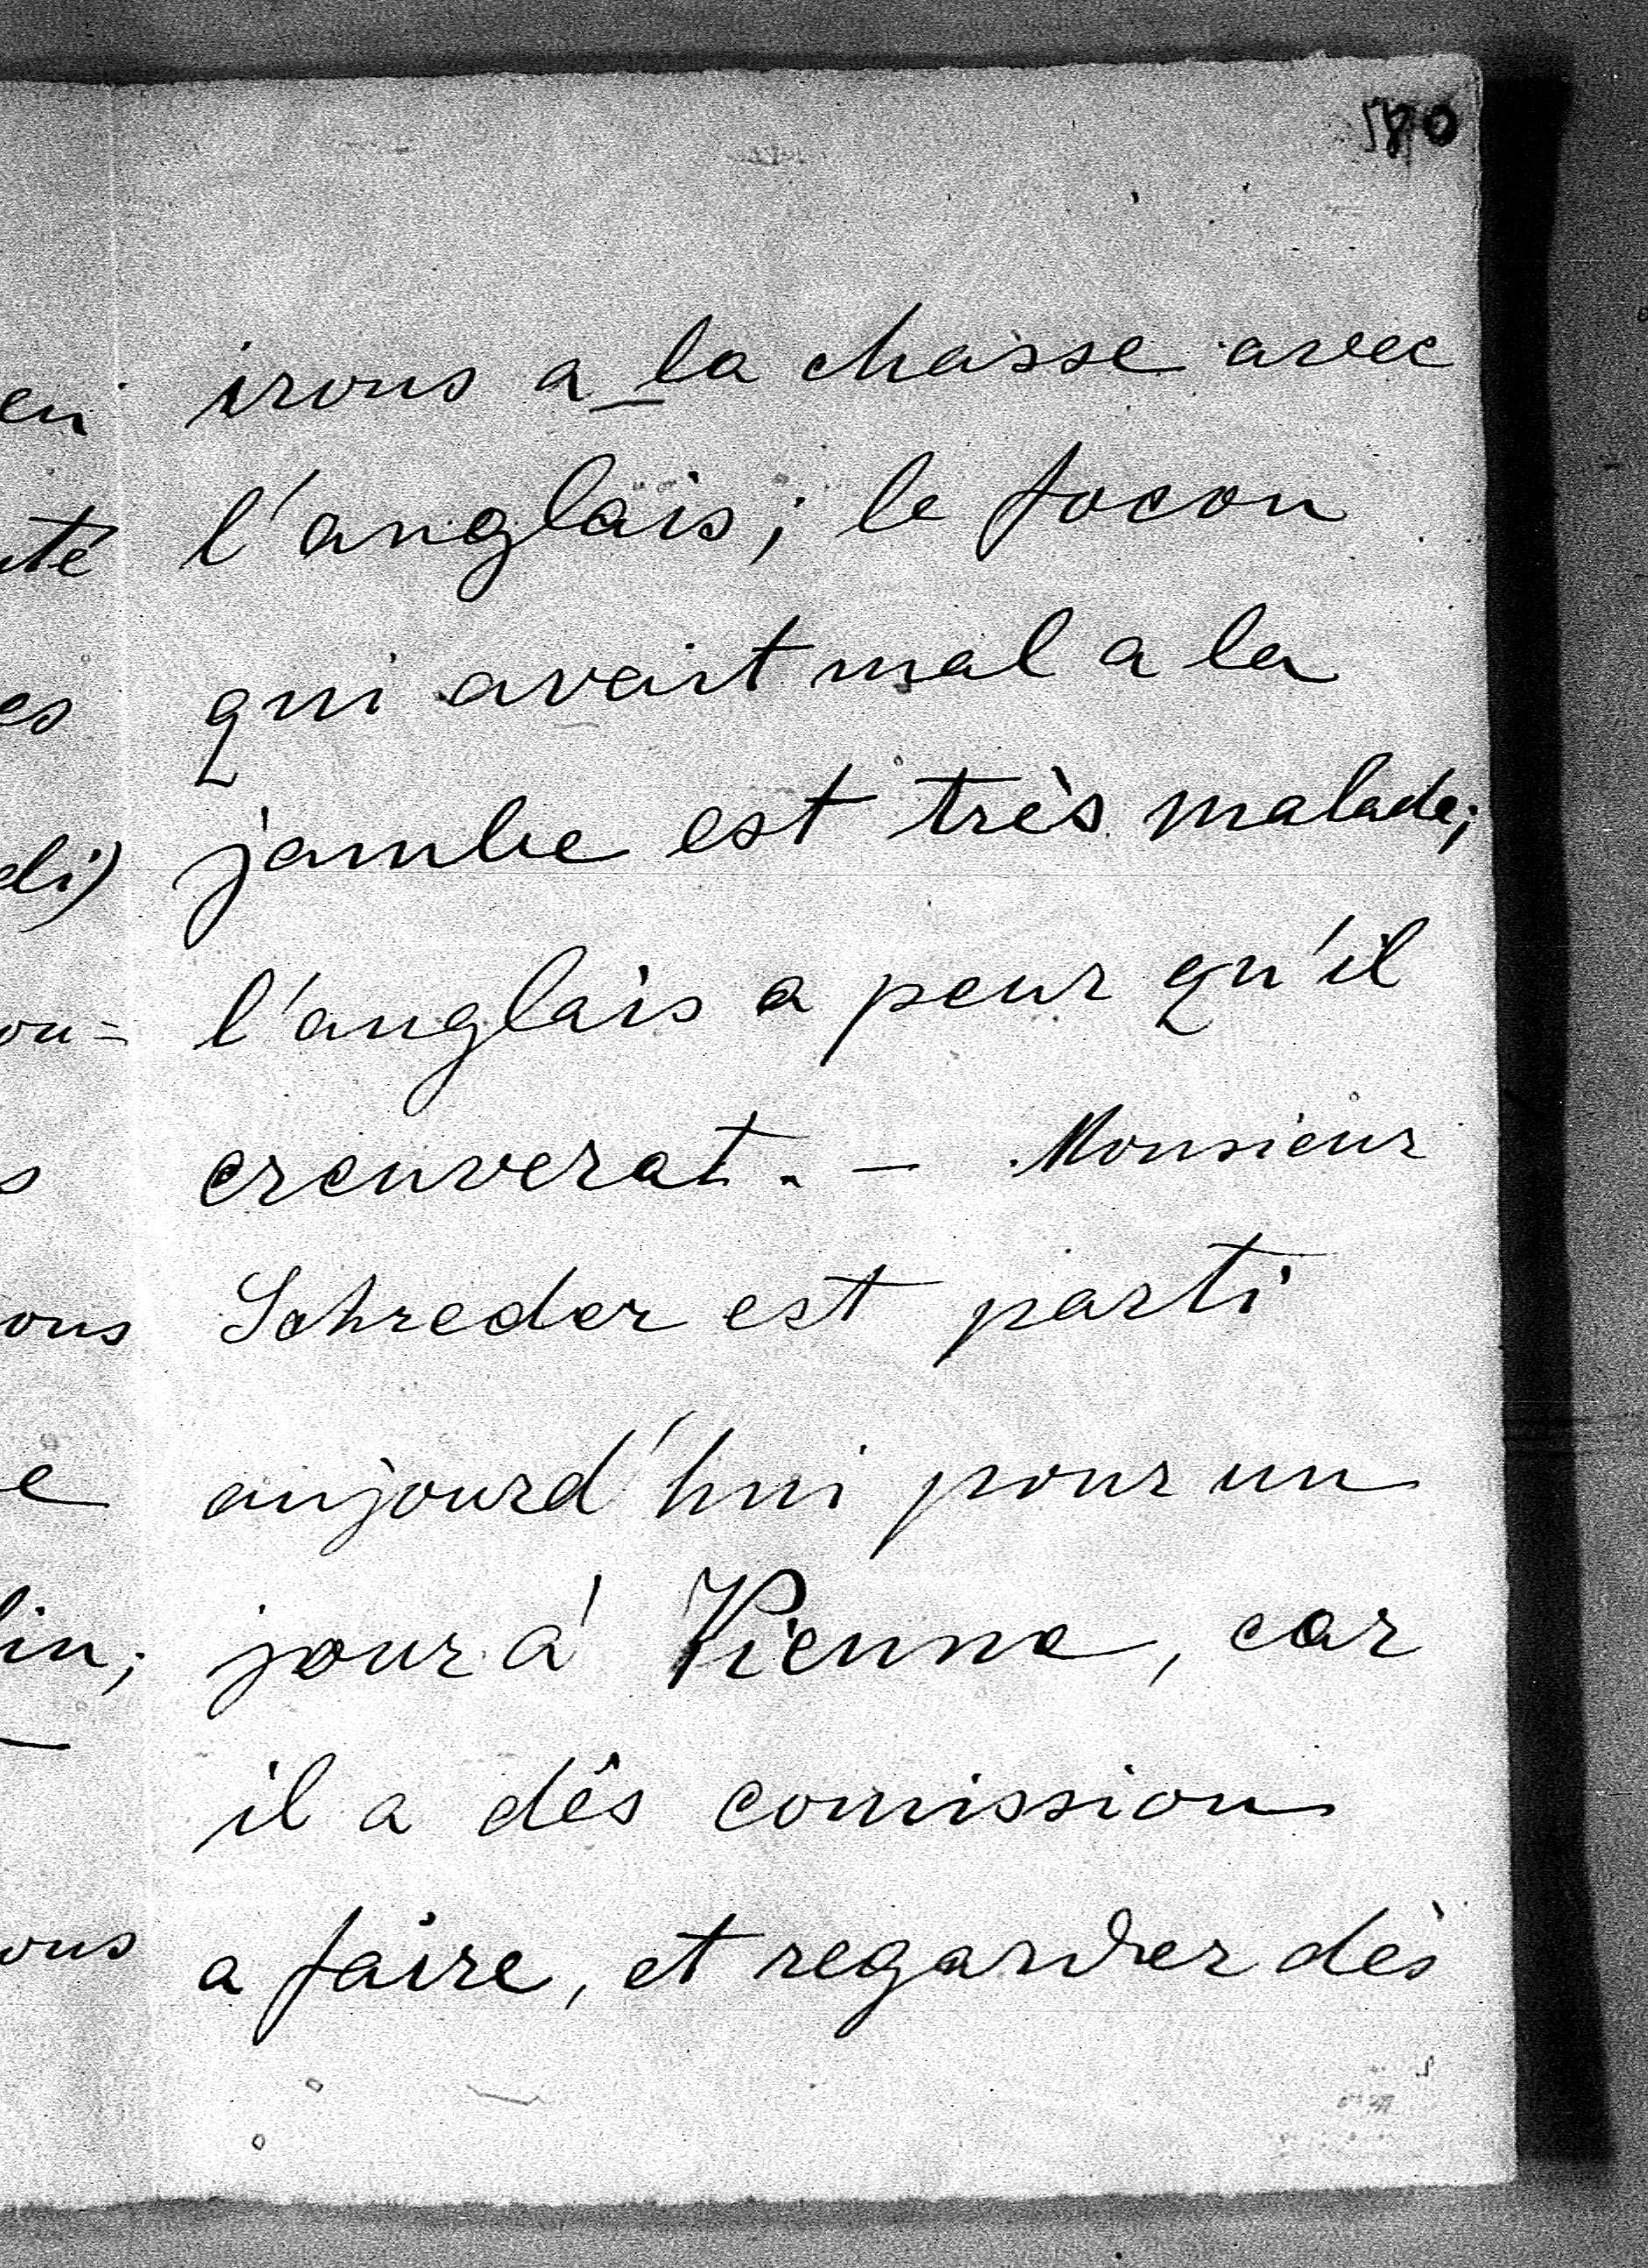 580
irons a la chasse avec
l'anglais; le focon
qui avait mal a la
jambe est très malade;
l'anglais a peur qu'il
creuverat. — Monsieur
Schreder est parti
aujourd'hui pour un
jour á Vienne, car
il a dês comission
a faire, et regarder dès